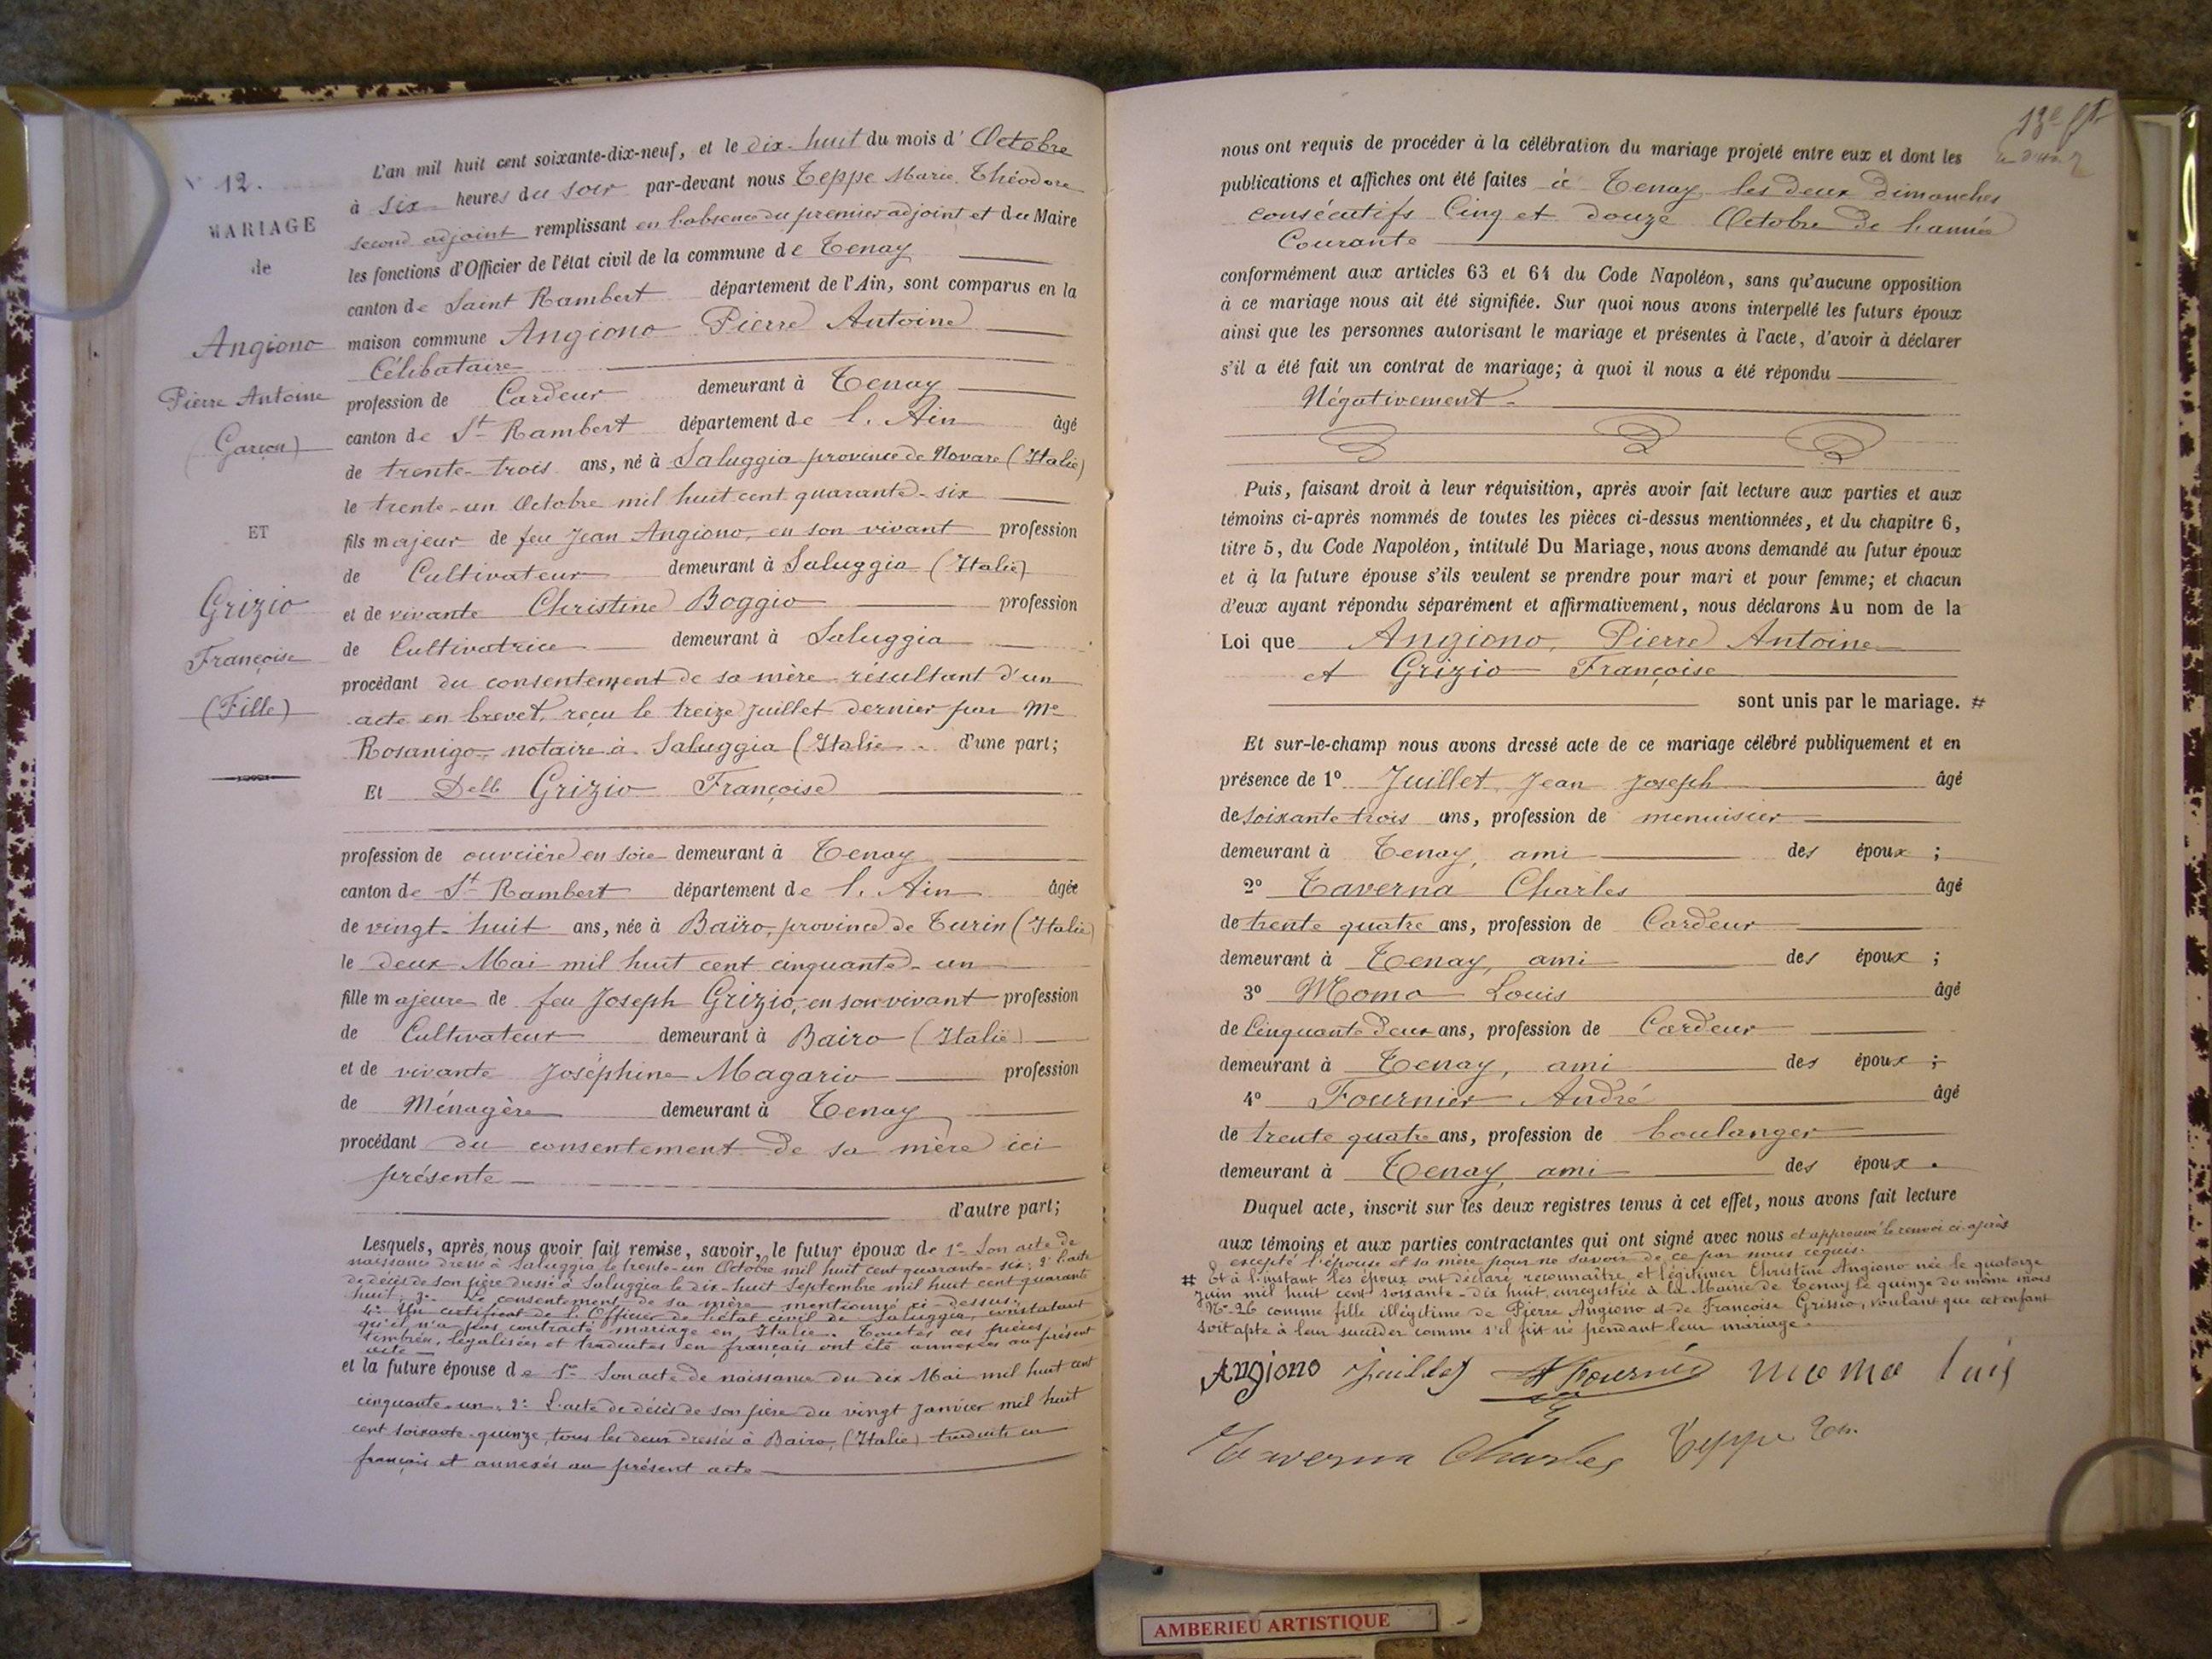 N° 12.
MARIAGE
de
Angiono
Pierre Antoine
(Garçon)
ET
Grizio
Françoise
(Fille)
L'an mil huit cent soixante-dix-neuf, et le dix-huit du mois d'Octobre
à six heures du soir par-devant nous Teppe Marie Théodore
second adjoint remplissant en l'absence du premier adjoint et du Maire
les fonctions d'Officier de l'état civil de la commune de Tenay
canton de Saint Rambert département de l'Ain, sont comparus en la
maison commune Angiono Pierre Antoine
Célibataire
profession de Cardeur demeurant à Tenay
canton de St Rambert département de l'Ain âgé
de trente-trois ans, né à Saluggia province de Novare (Italie)
le trente-un Octobre mil huit cent quarante-six
fils majeur de feu Jean Angiono, en son vivant profession
de Cultivateur demeurant à Saluggia (Italie)
et de vivante Christine Boggio profession
de Cultivatrice demeurant à Saluggia
procédant du consentement de sa mère résultant d'un
acte en brevet, reçu le treize Juillet dernier par Me
Rosanigo, notaire à Saluggia (Italie d'une part;
Et Delle Grizio Françoise
profession de ouvrière en soie demeurant à Tenay
canton de St Rambert département de l'Ain âgée
de vingt-huit ans, née à Baïro, province de Turin (Italie)
le deux Mai mil huit cent cinquante-un
fille majeure de feu Joseph Grizio, en son vivant profession
de Cultivateur demeurant à Bairo (Italie)
et de vivante Joséphine Magario profession
de Ménagère demeurant à Tenay
procédant du consentement de sa mère ici
présente
d'autre part;
Lesquels, après nous avoir fait remise, savoir, le futur époux de 1° Son acte de
naissance dressé à Saluggia le trente-un Octobre mil huit cent quarante-six; 2° l'acte
de décès de son père dressé à Saluggia le dix-huit Septembre mil huit cent quarante
huit 3° Le consentement de sa mère mentionné ci-dessus.
4° Un certificat de l'Officier de l'état civil de Saluggia, constatant
qu'il n'a pas contracté mariage en Italie. Toutes ces pièces
timbrées, légalisées et traduites en français ont été annexées au présent
acte
et la future épouse de 1° Son acte de naissance du dix Mai mil huit cent
cinquante-un. 2° L'acte de décès de son père du vingt Janvier mil huit
cent soixante-quinze, tous les deux dressés à Bairo, (Italie) traduits en
français et annexés au présent acte
nous ont requis de procéder à la célébration du mariage projeté entre eux et dont les
publications et affiches ont été faites à Tenay les deux dimanches
consécutifs Cinq et douze Octobre de l'année
Courante
conformément aux articles 63 et 64 du Code Napoléon, sans qu'aucune opposition
à ce mariage nous ait été signifiée. Sur quoi nous avons interpellé les futurs époux
ainsi que les personnes autorisant le mariage et présentes à l'acte, d'avoir à déclarer
s'il a été fait un contrat de mariage; à quoi il nous a été répondu
Négativement
Puis, faisant droit à leur réquisition, après avoir fait lecture aux parties et aux
témoins ci-après nommés de toutes les pièces ci-dessus mentionnées, et du chapitre 6,
titre 5, du Code Napoléon, intitulé Du Mariage, nous avons demandé au futur époux
et à la future épouse s'ils veulent se prendre pour mari et pour femme; et chacun
d'eux ayant répondu séparément et affirmativement, nous déclarons Au nom de la
Loi que Angiono, Pierre Antoine
et Grizio Françoise
sont unis par le mariage. #
Et sur-le-champ nous avons dressé acte de ce mariage célébré publiquement et en
présence de 1° Juillet Jean Joseph âgé
de soixante trois ans, profession de menuisier
demeurant à Tenay, ami des époux ;
2° Taverna Charles âgé
de trente quatre ans, profession de Cardeur
demeurant à Tenay, ami des époux ;
3° Momo Louis âgé
de Cinquante deux ans, profession de Cardeur
demeurant à Tenay, ami des époux ;
4° Fournier André âgé
de trente quatre ans, profession de boulanger
demeurant à Tenay, ami des époux.
Duquel acte, inscrit sur les deux registres tenus à cet effet, nous avons fait lecture
aux témoins et aux parties contractantes qui ont signé avec nous et approuvé le renvoi ci-après
excepté l'épouse et sa mère pour ne savoir de ce par nous requis.
# Et à l'instant les époux ont déclaré reconnaître et légitimer Christine Angiono née le quatorze
Juin mil huit cent soixante-dix huit, enregistrée à la Mairie de Tenay le quinze du même mois
N° 26 comme fille illégitime de Pierre Angiono et de Françoise Grissio, voulant que cet enfant
soit apte à leur succéder comme s'il fût né pendant leur mariage.
Angiono Juillet A Fournié momo luis
Taverna Charles Teppe
AMBERIEU ARTISTIQUE